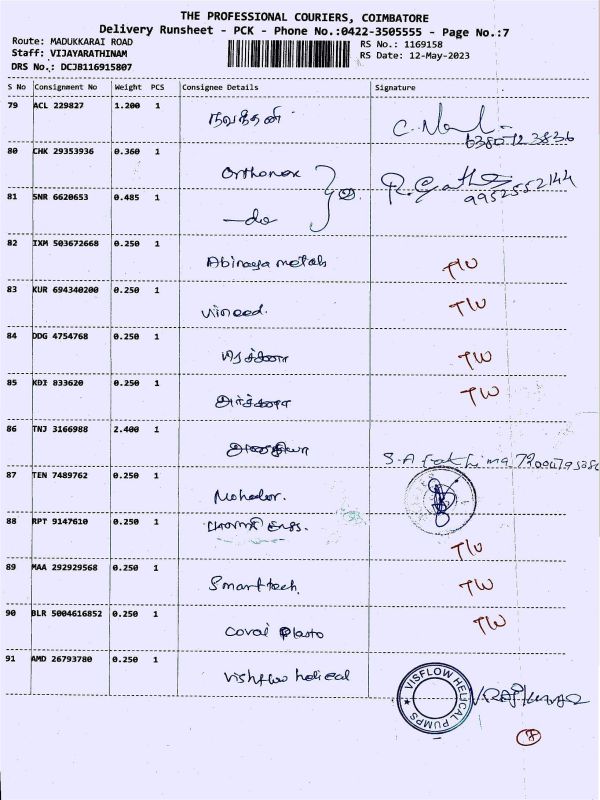 THE PROFESSIONAL COURIERS, COIMBATORE
Delivery Runsheet - PCK - Phone No.:0422-3505555 - Page No.:7
Route: MADUKKARAI ROAD RS No.: 1169158
Staff: VIJAYARATHINAM RS Date: 12-May-2023
DRS No.: DCJB116915807
S No Consignment No Weight PCS Consignee Details Signature
79 ACL 229827 1.200 1
80 CHK 29353936 0.360 1 Orthonex
81 SNR 6620653 0.485 1 -do
82 IXM 503672668 0.250 1 Abinaya metals T/W
83 KUR 694340200 0.250 1 T/W
84 DDG 4754768 0.250 1 T/W
85 KDI 833620 0.250 1 அர்ச்சனா T/W
86 TNJ 3166988 2.400 1 S.A Fathima
87 TEN 7489762 0.250 1
88 RPT 9147610 0.250 1 T/W
89 MAA 292929568 0.250 1 Smart tech. T/W
90 BLR 5004616852 0.250 1 Covai Plasto T/W
91 AMD 26793780 0.250 1 Vishflow helical
VISFLOW HELICAL PUMPS V.RAJKUMAR
7